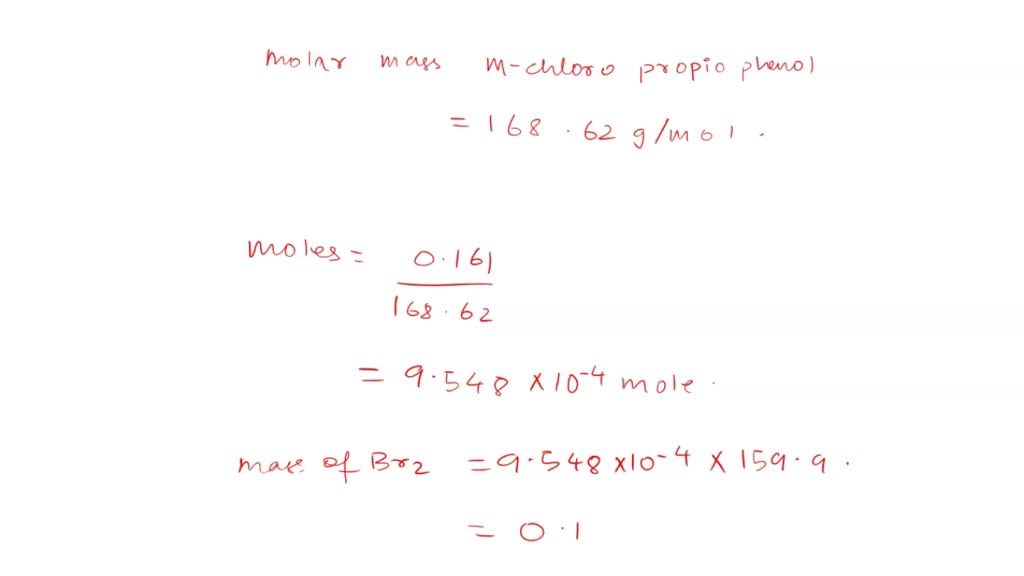 molar mass m-chloro propio phenol
= 168.62 g/mol.
moles = 0.161
168.62
= 9.548 × 10-4 mole.
mass of Br2 = 9.548 × 10-4 × 159.9.
= 0.1